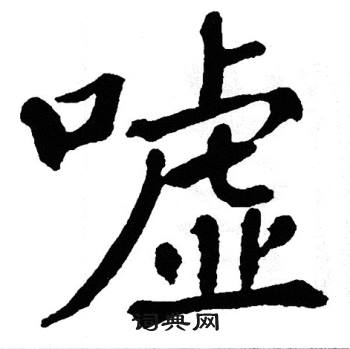 嘘
词典网